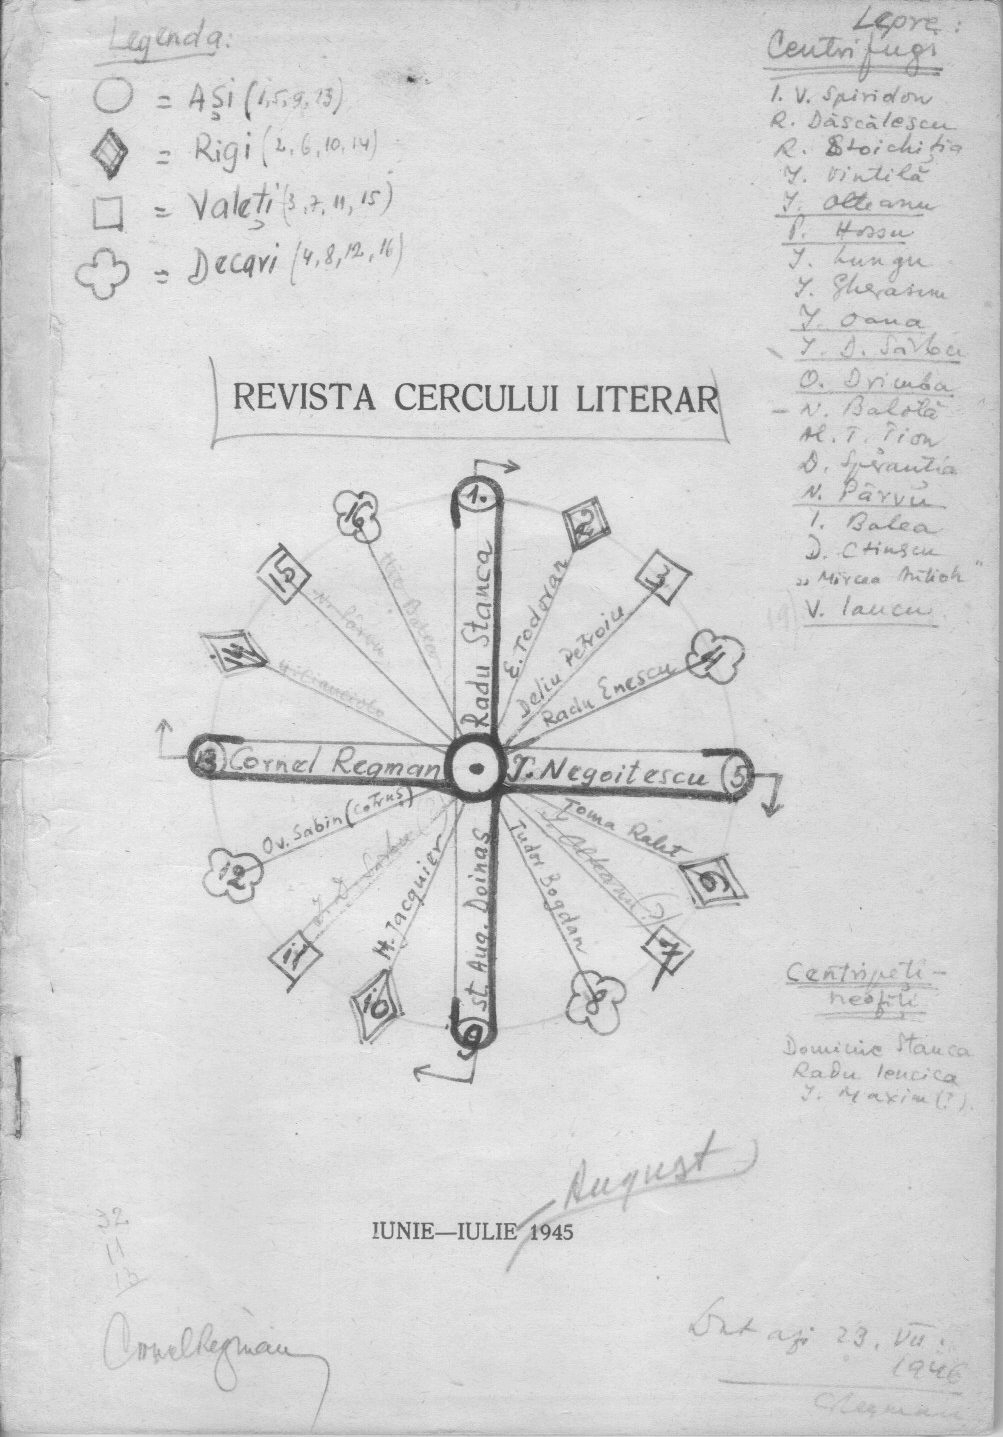 Legenda:
= Ași (1,5,9,13)
= Rigi (2,6,10,14)
= Valeți (3,7,11,15)
= Decari (4,8,12,16)
Lepre:
Centrifugi
I. V. Spiridon
R. Dăscălescu
R. Stoichiția
I. Vintilă
I. Olteanu
P. Hossu
I. Lungu
I. Gherasim
I. Oana
I. D. Sârbu
O. Drimba
- N. Balotă
Al. T. Tion
D. Sperantia
N. Pârvu
I. Balea
D. Ctinscu
„Mircea Antioh”
19) V. Iancu
REVISTA CERCULUI LITERAR
1. Radu Stanca
2 E. Todoran
3 Deliu Petroiu
4 Radu Enescu
5 I. Negoitescu
6 Toma Ralet
7 I. Olteanu (?)
8 Tudor Bogdan
9 St. Aug. Doinaș
10 H. Jacquier
11 I. D. Sârbu
12 Ov. Sabin (Cotruș)
13 Cornel Regman
14
15 N. Pârvu
16
Centripeți-
neofiți
Dominic Stanca
Radu Iencica
I. Maxim (?)
August
IUNIE—IULIE 1945
32
11
13
Cornel Regman
azi 23. VII.
1946
CRegman